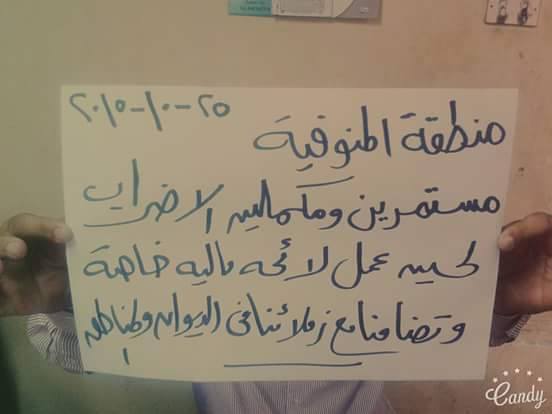 ٢٥-١٠-٢٠١٥
منطقة المنوفية
مستمرين ومكملين الاضراب
لحين عمل لائحه ماليه خاصة
وتضامنا مع زملائنا فى الديوان والمناطق
Candy